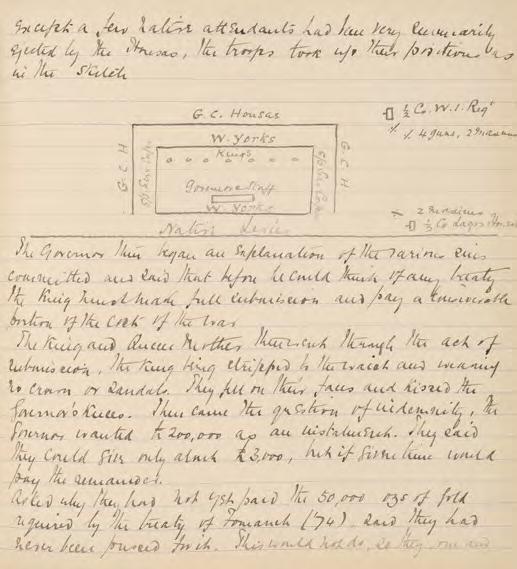 except a few native attendants had been very summarily
ejected by the Housas, the troops took up their positions as
in the sketch
G.C. Housas
½ Co. W.I. Regt
W. Yorks
4 guns, 2 Maxims
Kings
G C H
G C H
Governor & Staff
W. Yorks
2 Maxims
½ Co Lagos Housas
Native Levies
The Governor then began an explanation of the various sins
committed and said that before he could think of any treaty
the King must make full submission and pay a considerable
portion of the cost of the war
The King and Queen Mother then went through the act of
submission, the King being stripped to the waist and wearing
no crown or sandals. They fell on their faces and kissed the
Governor's knees. Then came the question of indemnity, the
Governor wanted £200,000 as an instalment. They said
they could give only about £3,000, but if given time would
pay the remainder.
Asked why they had not yet paid the 50,000 ozs of gold
required by the treaty of Fomanah ('74) said they had
never been pressed for it. This would not do, so they one and